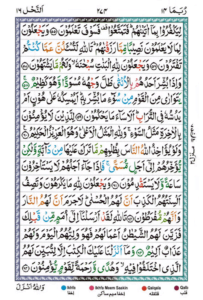 رُبَمَا ١٤ ٢٧٣ اَلنَّحْل ١٦
لِيَكْفُرُوْا بِمَاۤ اٰتَيْنٰهُمْ ؕ فَتَمَتَّعُوْا ۫ فَسَوْفَ تَعْلَمُوْنَ ۝ وَيَجْعَلُوْنَ
لِمَا لَا يَعْلَمُوْنَ نَصِيْبًا مِّمَّا رَزَقْنٰهُمْ ؕ تَاللّٰهِ لَتُسْـَٔلُنَّ عَمَّا كُنْتُمْ
تَفْتَرُوْنَ ۝ وَيَجْعَلُوْنَ لِلّٰهِ الْبَنٰتِ سُبْحٰنَهٗ ۙ وَلَهُمْ مَّا يَشْتَهُوْنَ ۝
وَاِذَا بُشِّرَ اَحَدُهُمْ بِالْاُنْثٰى ظَلَّ وَجْهُهٗ مُسْوَدًّا وَّهُوَ كَظِيْمٌ ۝
يَتَوَارٰى مِنَ الْقَوْمِ مِنْ سُوْٓءِ مَا بُشِّرَ بِهٖ ؕ اَيُمْسِكُهٗ عَلٰى هُوْنٍ اَمْ
يَدُسُّهٗ فِى التُّرَابِ ؕ اَلَا سَآءَ مَا يَحْكُمُوْنَ ۝ لِلَّذِيْنَ لَا يُؤْمِنُوْنَ
بِالْاٰخِرَةِ مَثَلُ السَّوْءِ ۚ وَلِلّٰهِ الْمَثَلُ الْاَعْلٰى ؕ وَهُوَ الْعَزِيْزُ الْحَكِيْمُ ۝
وَلَوْ يُؤَاخِذُ اللّٰهُ النَّاسَ بِظُلْمِهِمْ مَّا تَرَكَ عَلَيْهَا مِنْ دَآبَّةٍ وَّلٰكِنْ
يُّؤَخِّرُهُمْ اِلٰۤى اَجَلٍ مُّسَمًّى ۚ فَاِذَا جَآءَ اَجَلُهُمْ لَا يَسْتَاْخِرُوْنَ
سَاعَةً وَّلَا يَسْتَقْدِمُوْنَ ۝ وَيَجْعَلُوْنَ لِلّٰهِ مَا يَكْرَهُوْنَ وَتَصِفُ
اَلْسِنَتُهُمُ الْكَذِبَ اَنَّ لَهُمُ الْحُسْنٰى ؕ لَا جَرَمَ اَنَّ لَهُمُ النَّارَ
وَاَنَّهُمْ مُّفْرَطُوْنَ ۝ تَاللّٰهِ لَقَدْ اَرْسَلْنَاۤ اِلٰۤى اُمَمٍ مِّنْ قَبْلِكَ
فَزَيَّنَ لَهُمُ الشَّيْطٰنُ اَعْمَالَهُمْ فَهُوَ وَلِيُّهُمُ الْيَوْمَ وَلَهُمْ
عَذَابٌ اَلِيْمٌ ۝ وَمَاۤ اَنْزَلْنَا عَلَيْكَ الْكِتٰبَ اِلَّا لِتُبَيِّنَ لَهُمُ
الَّذِى اخْتَلَفُوْا فِيْهِ ۙ وَهُدًى وَّرَحْمَةً لِّقَوْمٍ يُّؤْمِنُوْنَ ۝
وَاللّٰهُ اَنْزَلَ
Ikhfa
Ikhfa Meem Saakin
Qalqala